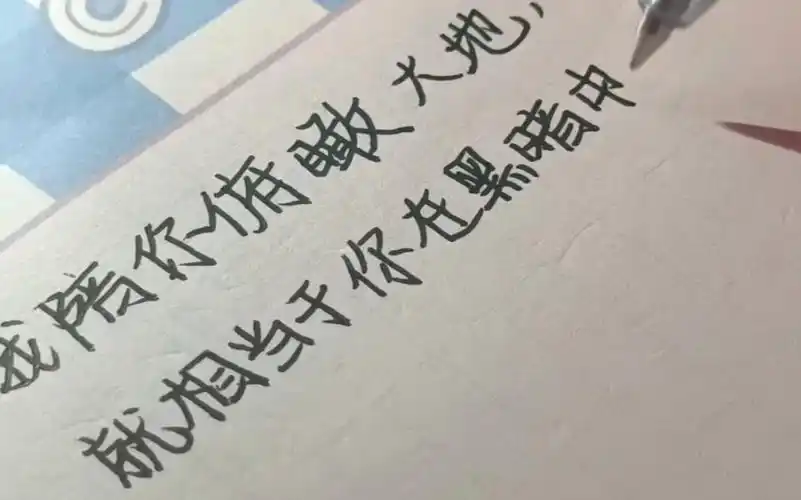 我陪你俯瞰大地，
就相当于你在黑暗中